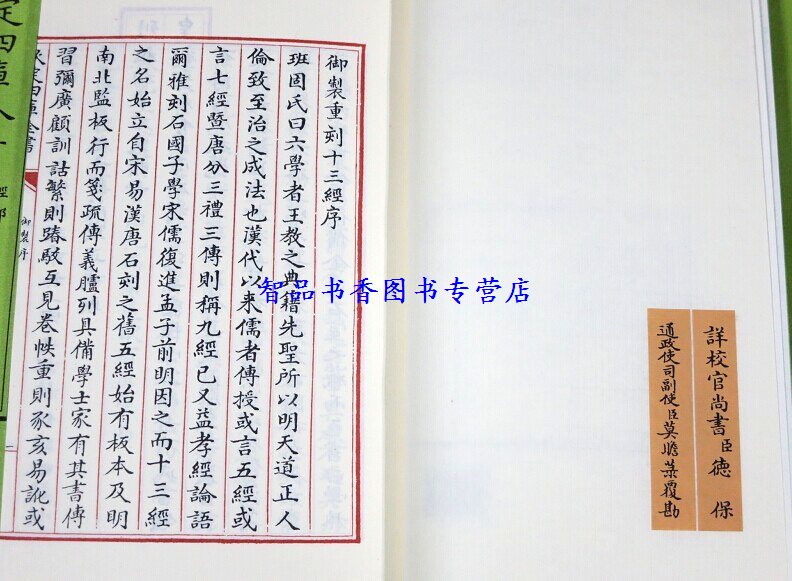 詳校官尚書臣德保
通政使司副使臣莫瞻菉覆勘
御製重刻十三經序
班固氏曰六學者王教之典籍先聖所以明天道正人
倫致至治之成法也漢代以来儒者傳授或言五經或
言七經暨唐分三禮三傳則稱九經已又益孝經論語
爾雅刻石國子學宋儒復進孟子前明因之而十三經
之名始立自宋易漢唐石刻之舊五經始有板本及明
南北監板行而箋疏傳義臚列具備學士家有其書傳
習彌廣顧訓詁繁則踳駁互見卷帙重則豕亥易訛或
欽定四庫全書
御製序
定四庫
經部
智品书香图书专营店